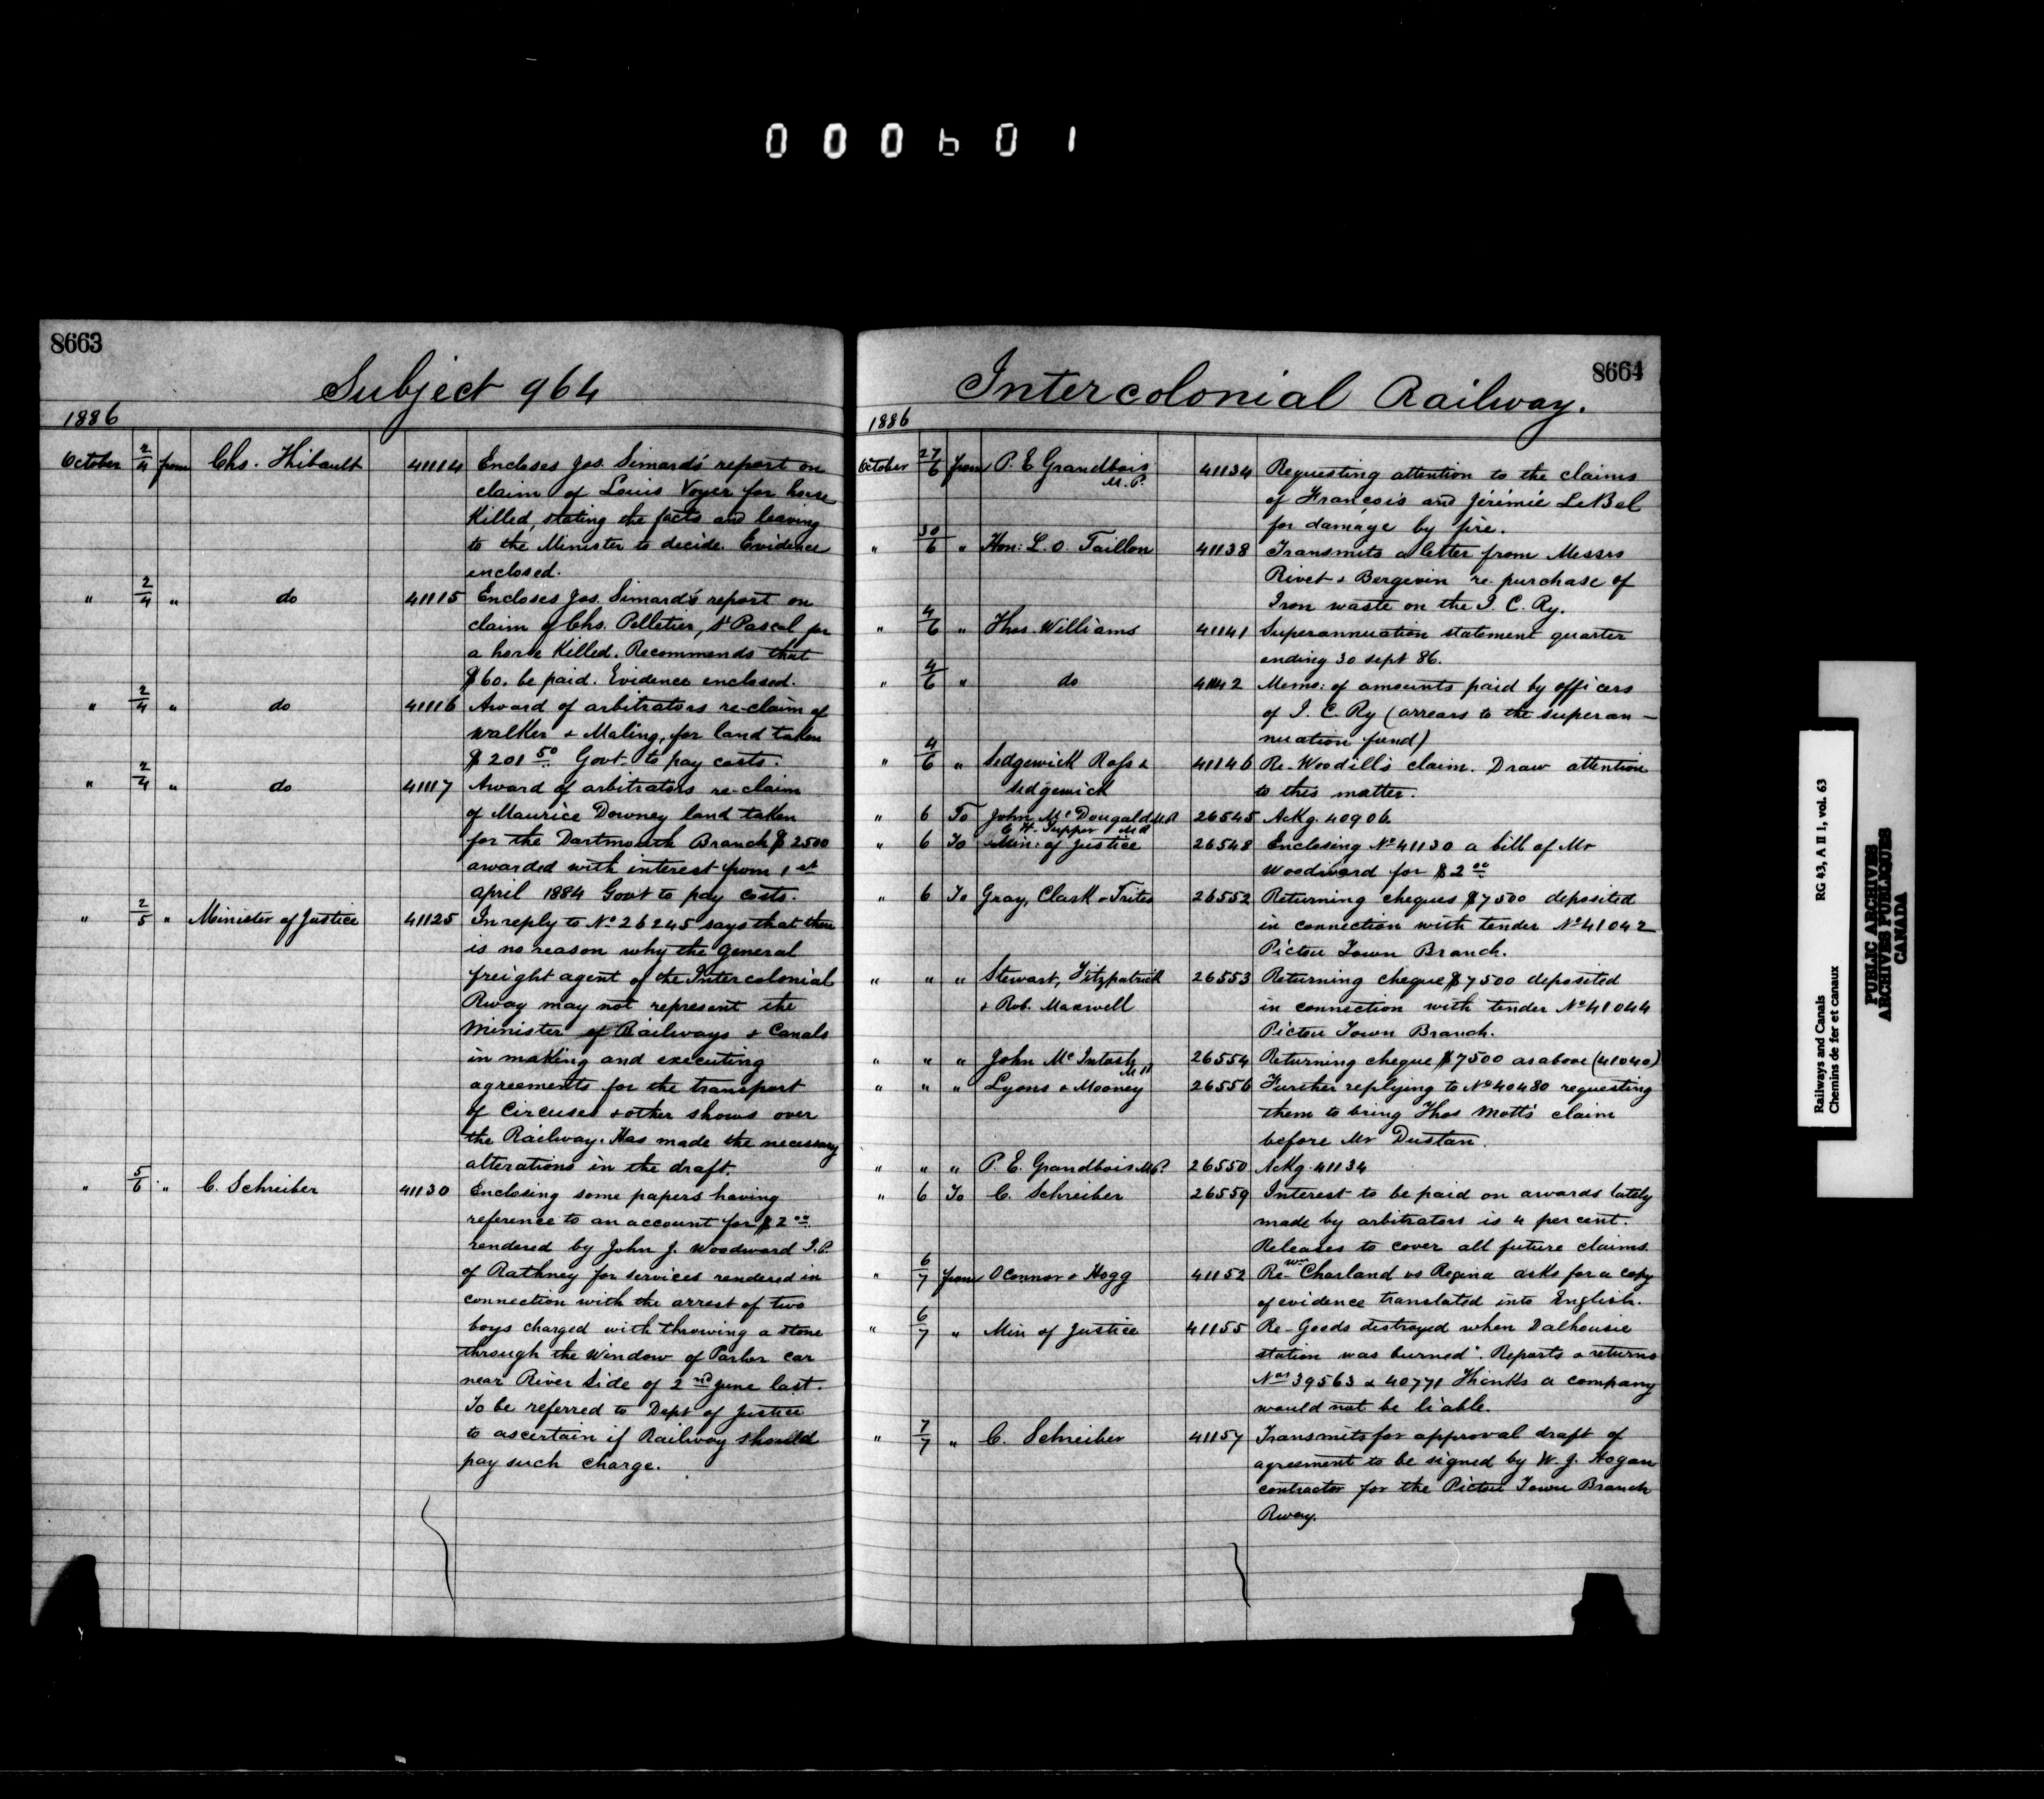 000601
8663
Subject 964
1886
October 2/4 from Chs. Thibault 41114 Encloses Jos. Simard's report on
claim of Louis Voyer for horse
Killed, stating the facts and leaving
to the Minister to decide. Evidence
enclosed.
" 2/4 " do 41115 Encloses Jos. Simard's report on
claim of Chs. Pelletier, St Pascal for
a horse Killed. Recommends that
$60. be paid. Evidence enclosed.
" 2/4 " do 41116 Award of arbitrators re-claim of
Walker & Maling, for land taken
$201 50 Govt to pay costs.
" 2/4 " do 41117 Award of arbitrators re-claim
of Maurice Downey land taken
for the Dartmouth Branch $2500
awarded with interest from 1st
april 1884 Govt to pay costs.
" 2/5 " Minister of Justice 41125 In reply to No 26245 says that there
is no reason why the General
freight agent of the Intercolonial
Rway may not represent the
Minister of Railways & Canals
in making and executing
agreements for the transport
of Circuses & other shows over
the Railway. Has made the necessary
alterations in the draft.
" 5/6 " C. Schreiber 41130 Enclosing some papers having
reference to an account for $2 00
rendered by John J. Woodward J.P.
of Rathney for services rendered in
connection with the arrest of two
boys charged with throwing a stone
through the window of Parlor car
near River Side of 2nd June last.
To be referred to Dept of Justice
to ascertain if Railway should
pay such charge.
8664
Intercolonial Railway.
1886
October 27/6 from P. E Grandbois M.P. 41134 Requesting attention to the claims
of François and Jérémie LeBel
for damage by fire.
" 30/6 " Hon: L. O. Taillon 41138 Transmits a letter from Messrs
Rivet & Bergevin re-purchase of
Iron waste on the I. C. Ry.
" 4/6 " Thos. Williams 41141 Superannuation statement quarter
ending 30 sept 86.
" 4/6 " do 41142 Memo: of amounts paid by officers
of I. C. Ry (arrears to the superan-
nuation fund)
" 4/6 " Sedgewick Ross & 41146 Re-Woodill's claim. Draw attention
Sedgewick to this matter.
" 6 To John McDougald M.P. 26545 Ackg. 40906
C. H. Tupper
" 6 To Min: of Justice 26548 Enclosing No 41130 a bill of Mr
Woodward for $2 00
" 6 To Gray, Clark & Trites 26552 Returning cheques $7500 deposited
in connection with tender No 41042
Pictou Town Branch.
" " " Stewart, Fitzpatrick 26553 Returning cheque $7500 deposited
& Rob. Maxwell in connection with tender No 41044
Pictou Town Branch.
" " " John McIntosh 26554 Returning cheque $7500 as above (41040)
" " " Lyons & Mooney 26556 Further replying to No 40480 requesting
them to bring Thos Mott's claim
before Mr Dustan.
" " " P. E. Grandbois M.P. 26550 Ackg. 41134
" 6 To C. Schreiber 26559 Interest to be paid on awards lately
made by arbitrators is 4 per cent.
Releases to cover all future claims.
" 6/7 from OConnor & Hogg 41152 Re-Wm Charland vs Regina asks for a copy
of evidence translated into English.
" 6/7 " Min of Justice 41155 Re-Goods destroyed when Dalhousie
station was burned. Reports & returns
Nos 39563 & 40771 Thinks a company
would not be liable.
" 7/7 " C. Schreiber 41157 Transmits for approval draft of
agreement to be signed by W. J. Hogan
contractor for the Pictou Town Branch
Rway.
Railways and Canals RG 43, A II 1, vol. 63
Chemins de fer et canaux
PUBLIC ARCHIVES
ARCHIVES PUBLIQUES
CANADA